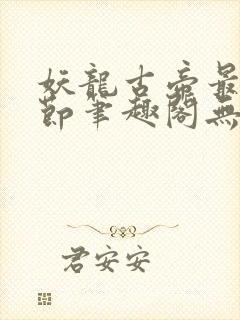 妖龍古帝最
節筆趣閣無
君安安